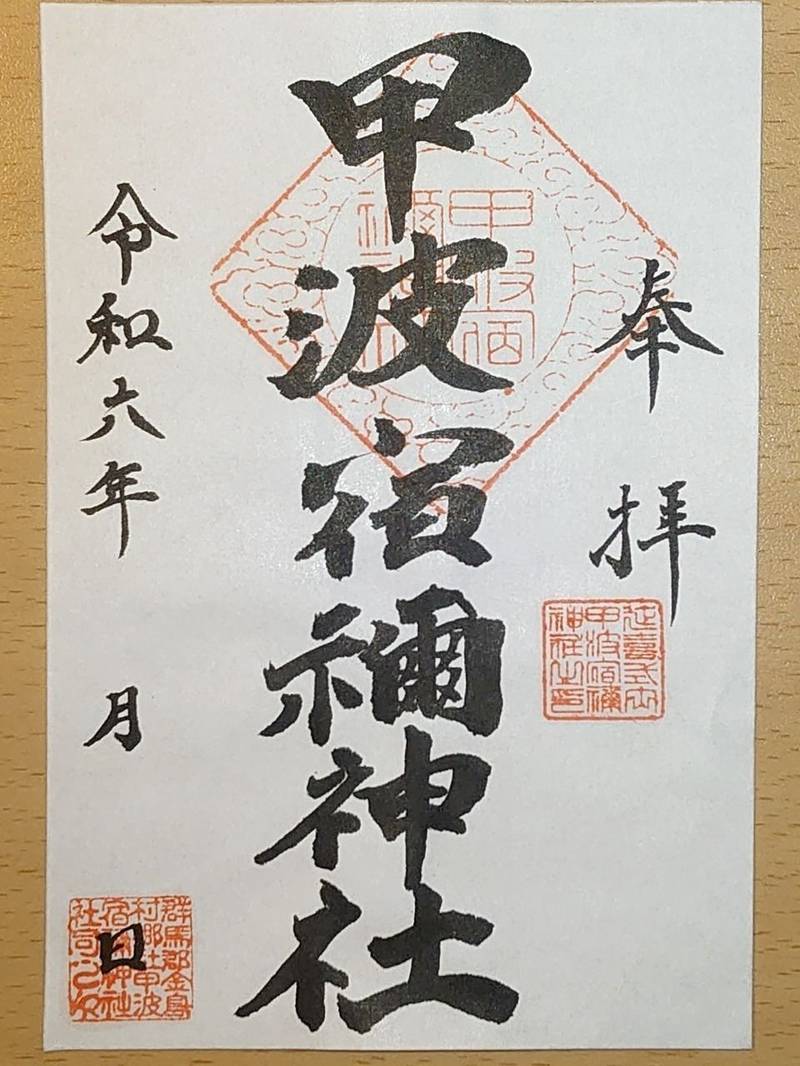 奉拝
延喜式内
甲波宿禰
神社之印
甲波宿禰神社
甲波宿
禰神社
令和六年 月 日
群馬郡金島
村郷社甲波